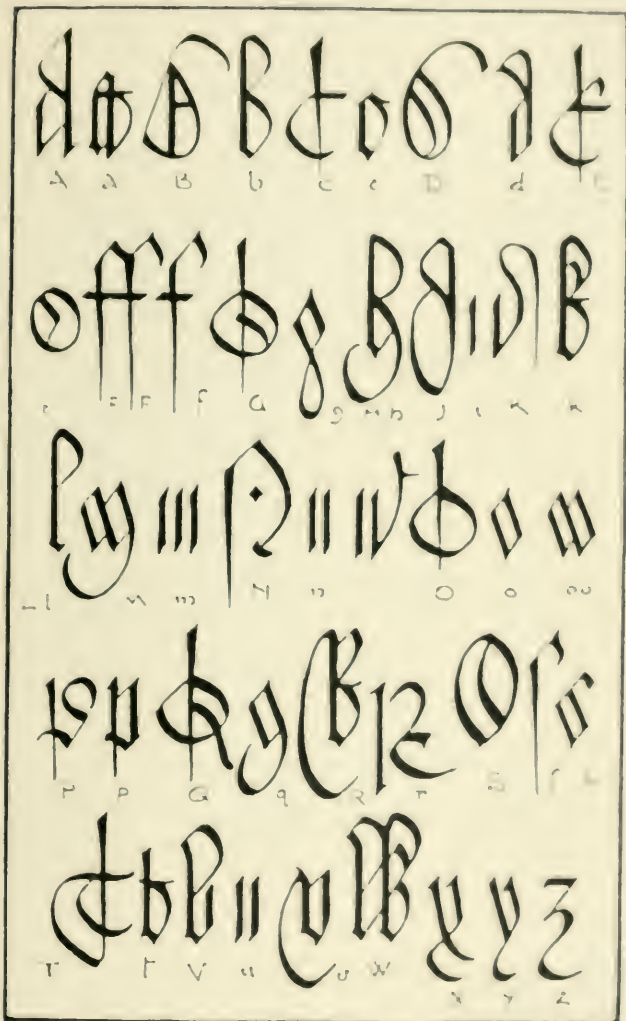 A a B b C c D d E
e F F f G g H h J i K k
L l M m N n O o w
P p Q q R r S ſ s
T t V u v W x y z